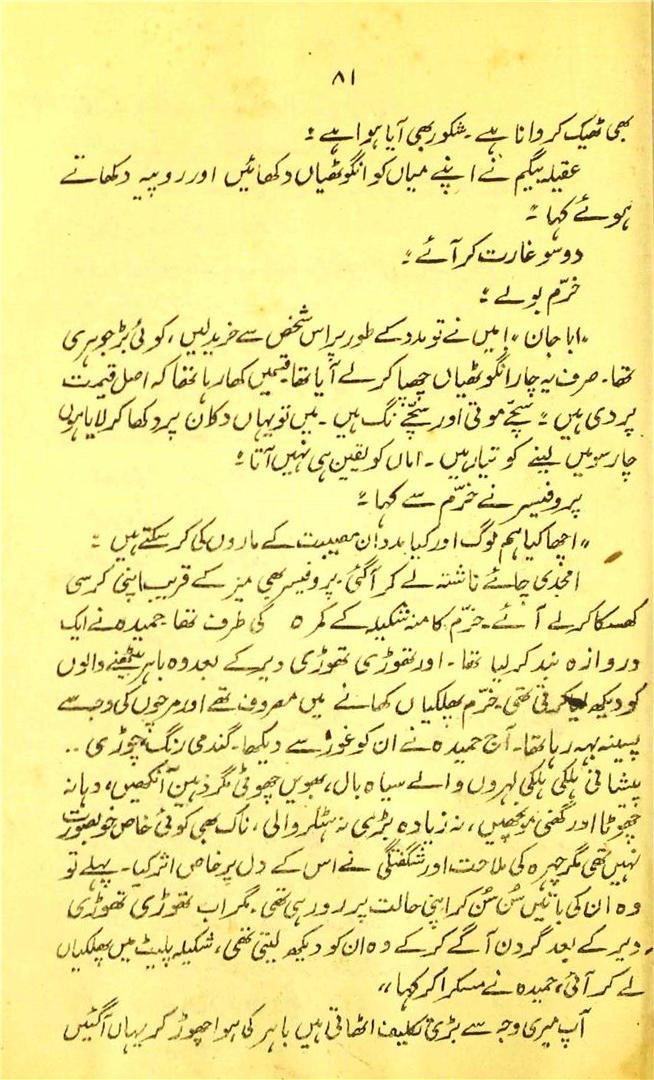 ۸۱
بھی ٹھیک کروانا ہے۔ شکور بھی آیا ہوا ہے ؛
عقیلہ بیگم نے اپنے میاں کو انگوٹھیاں دکھائیں اور روپیہ دکھاتے
ہوئے کہا ؛
دو سو غارت کر آئے ؛
خرّم بولے ؛
"ابا جان" ! میں نے تو مدد کے طور پر اس شخص سے خرید لیں، کوئی بڑ جوہری
تھا۔ صرف یہ چار انگوٹھیاں چھپا کر لے آیا تھا۔ قسمیں کھا رہا تھا کہ اصل قیمت
پر دی ہیں ؛ سچّے موتی اور سچّے نگ ہیں۔ میں تو یہاں دکان پر دکھا کر لایا ہوں
چار سو میں لینے کو تیار ہیں۔ اماں کو یقین ہی نہیں آتا ؛
پروفیسر نے خرّم سے کہا ؛
"اچھا کیا ہم لوگ اور کیا مدد ان مصیبت کے ماروں کی کر سکتے ہیں ؛
امجدی چائے ناشتہ لے کر آ گئی۔ پروفیسر بھی میز کے قریب اپنی کرسی
کھسکا کر لے آئے۔ خرّم کا منہ شکیلہ کے کمرہ کی طرف تھا۔ حمیدہ نے ایک
دروازہ بند کر لیا تھا۔ اور تھوڑی تھوڑی دیر کے بعد وہ باہر بیٹھنے والوں
کو دیکھ لیا کرتی تھی۔ خرّم پھلکیاں کھانے میں مصروف تھے اور مرچوں کی وجہ سے
پسینہ بہہ رہا تھا۔ آج حمیدہ نے ان کو غور سے دیکھا۔ گندمی رنگ، چوڑی ..
پیشانی ہلکی ہلکی لہروں والے سیاہ بال، بھویں چھوٹی مگر ذہین آنکھیں، دہانہ
چھوٹا اور گھنی مونچھیں، نہ زیادہ بڑی نہ ہٹلر والی، ناک بھی کوئی خاص خوبصورت
نہیں تھی مگر چہرہ کی ملاحت اور شگفتگی نے اس کے دل پر خاص اثر کیا۔ پہلے تو
وہ ان کی باتیں سُن سُن کر اپنی حالت پر رو رہی تھی۔ مگر اب تھوڑی تھوڑی
دیر کے بعد گردن آگے کر کے وہ ان کو دیکھ لیتی تھی، شکیلہ پلیٹ میں پھلکیاں
لے کر آئی، حمیدہ نے مسکرا کر کہا "
آپ میری وجہ سے بڑی تکلیف اٹھاتی ہیں باہر کی ہوا چھوڑ کر یہاں آ گئیں